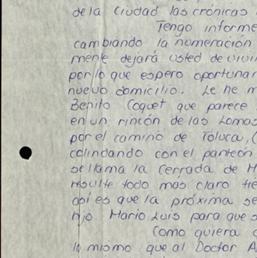 de la Ciudad las crónicas
Tengo informe
cambiando la numeración
mente dejará usted de vivir
por lo que espero oportunam
nuevo domicilio. Le he m
Benito Coquet que parece
en un rincón de las Lomas
por el camino de Toluca, (
colindando con el panteón
se llama la Cerrada de H
resulte todo mas claro
es que la próxima se
hijo Mario Luis para que
Como quiera
lo mismo que al Doctor A